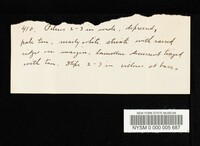 410. Pileus 2-3 in wide, depressed,
pale tan, nearly white striate with raised
edges on margin. Lamellae decurrent tinged
with tan. Stipe 2-3 in at base.
NEW YORK STATE MUSEUM
NYSM 0 000 005 687